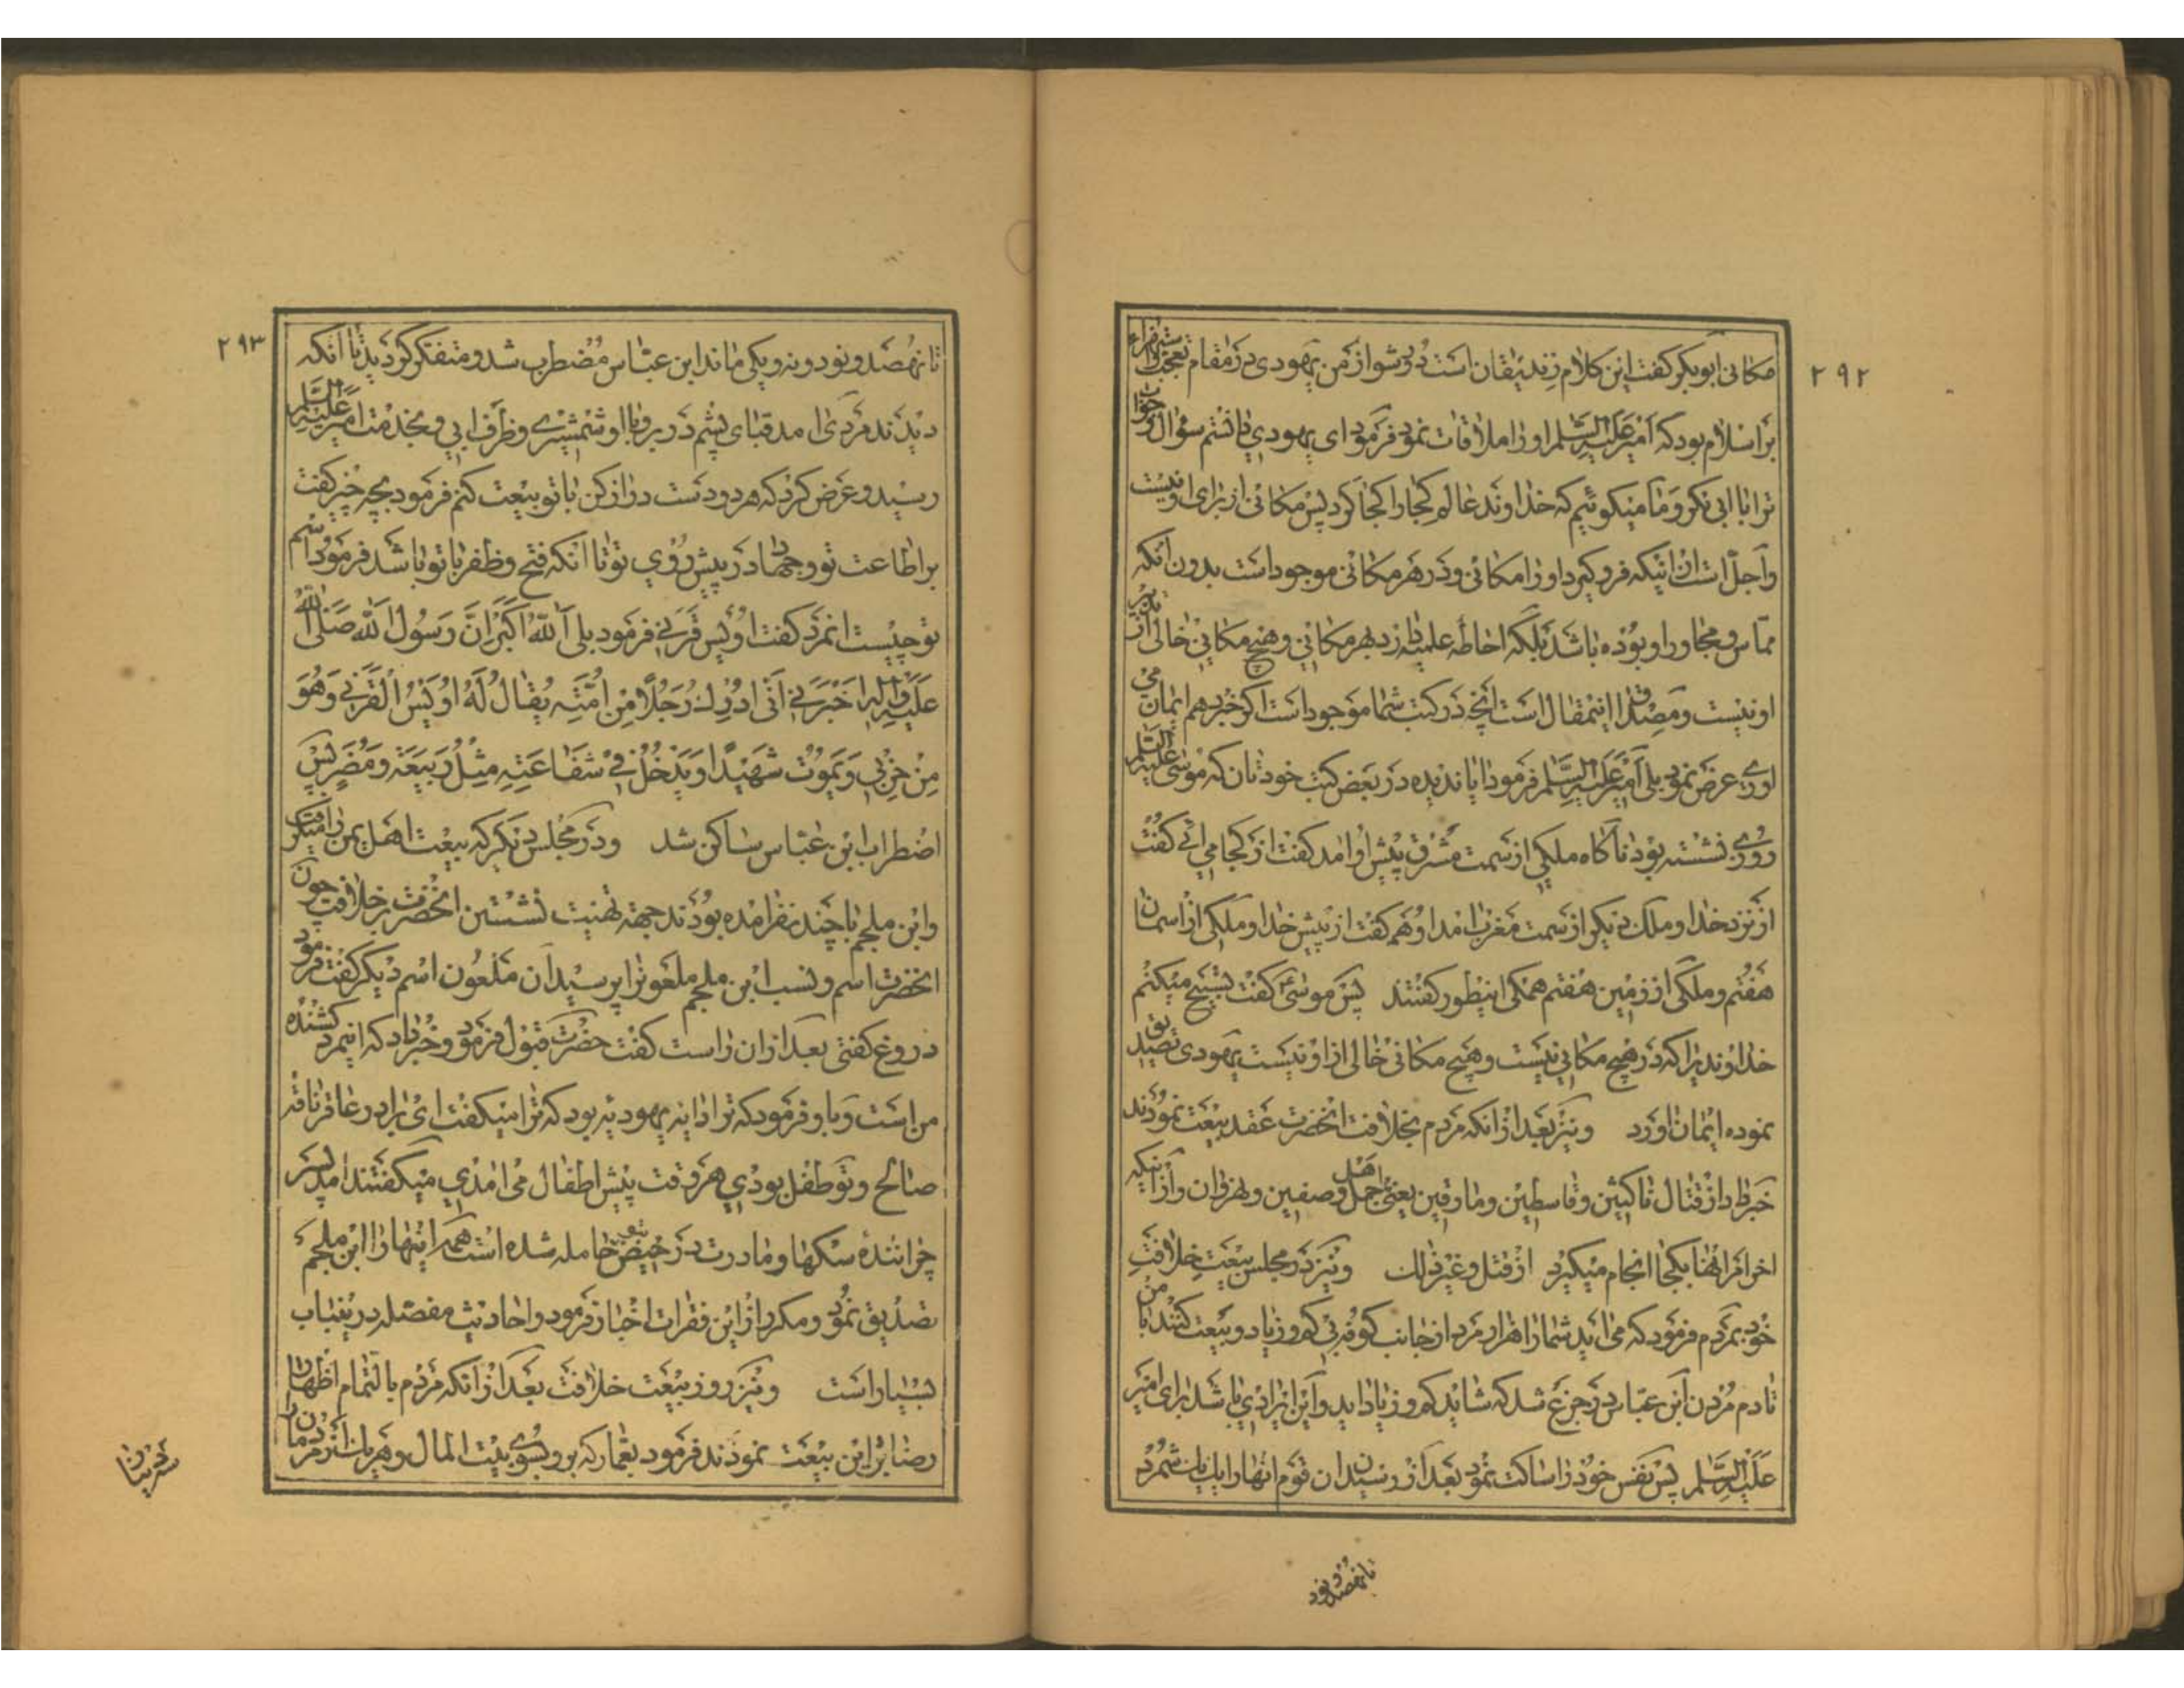 ۲۹۲
مکانی ابوبکر گفت این کلام زندیقان است دور شو از من یهودی در مقام تعجب و استهزاء
بر اسلام بود که امیر علیه السلام او را ملاقات نمود فرمود ای یهودی دانستم سؤال و جواب
ترا با ابی بکر و ما میکوئیم که خداوند عالم کجا را کجا کرد پس مکانی از برای او نیست
و اجلّ است از اینکه فرو کیرد او را مکانی و در هر مکانی موجود است بدون انکه
مماس و مجاور او بوده باشد بلکه احاطه علمیه دارد بهر مکانی و هیچ مکانی خالی از تدبیر
او نیست و مصداق اینمقال است انچه در کتب شما موجود است اکر خبر دهم ایمان می
اوری عرض نمود بلی امیر علیه السلم فرمود ایا ندیده در بعض کتب خودتان که موسی علیه السلم
روزی نشسته بود ناکاه ملکی از سمت مشرق پیش او امد کفت از کجا می ائی کفت
از نزد خدا و ملک دیکر از سمت مغرب امد او هم کفت از پیش خدا و ملکی از اسمان
هفتم و ملکی از زمین هفتم همکی اینطور کفتند پس موسیؑ کفت تسبیح میکنم
خداوندیرا که در هیچ مکانی نیست و هیچ مکانی خالی از او نیست یهودی تصدیق
نموده ایمان اورد و نیز بعد از انکه مردم بخلافت انحضرت عقد بیعت نمودند
خبر داد از قتال ناکثین و قاسطین و مارقین یعنی اهل جمل و صفین و نهروان و از اینکه
اخر امر انها بکجا انجام میکیرد از قتل و غیر ذالک و نیز در مجلس بیعت خلافتِ
خود بمردم فرمود که می اید شما را هزار مرد از جانب کوفه بی کم و زیاد و بیعت کنند با من
تا دم مردن ابن عباس در جزع شد که شاید کم و زیاد اید و این ایرادی باشد برای امیر
علیه السلم پس نفس خود را ساکت نمود بعد از رسیدن ان قوم انها را یک یک شمرد
تا نهصد و نود
۲۹۳
تا نهصد و نود و نه و یکی ماند ابن عباس مضطرب شد و متفکر کردید تا انکه
دیدند مردی امد قبای پشم در بر و با او شمشیری و ظرف ابی و بخدمت امیر علیه السلم
رسید و عرض کرد که هر دو دست دراز کن با تو بیعت کنم فرمود بچه چیز کفت
بر اطاعت تو و جهاد در پیش روی تو تا انکه فتح و ظفر با تو باشد فرمود اسم
تو چیست انمرد کفت اویس قرنی فرمود بلی اَللّٰه اکبر اِنّ رَسُولَ اللّٰه صَلّی اللّٰه
عَلَیْهِ وَ اٰلِهِ اَخْبَرَنی اَنّی اُدْرِکُ رَجُلًا مِنْ اُمَّتِهِ یُقالُ لَهُ اُوَیْسُ الْقَرَنی وَ هُوَ
مِنْ حِزْبی وَ یَمُوتُ شَهیدًا وَ یَدْخُلُ فی شَفاعَتِهِ مِثْلُ رَبیعَةَ وَ مُضَرٍ پس
اضطراب ابن عباس ساکن شد و در مجلس دیکر که بیعت اهل یمن را میکرفت
و ابن ملجم با چند نفر امده بودند جهة تهنیت نشستین انحضرت بر خلافت چون
انحضرت اسم و نسب ابن ملجم ملعونرا پرسید ان ملعون اسم دیکر کفت فرمود
دروغ کفتی بعد از ان راست کفت حضرت قبول فرمود و خبر داد که انیمرد کشنده
من است و باو فرمود که ترا دایه یهودیه بود که ترا میکفت ای برادر عاقر ناقه
صالح و تو طفل بودی هر وقت پیش اطفال می امدی میکفتند امد پسر
چرانندهٔ سکها و مادرت در حیض بتو حامله شده است همه اینها را ابن ملجم
تصدیق نمود و مکرر از این فقرات اخبار فرمود و احادیث مفصله در ینباب
بسیار است و نیز روز بیعت خلافت بعد از انکه مردم بالتمام اظهار
رضا بر این بیعت نمودند فرمود بعمار که برو بسوی بیت المال و هر یک از مردمان را
سه دینار